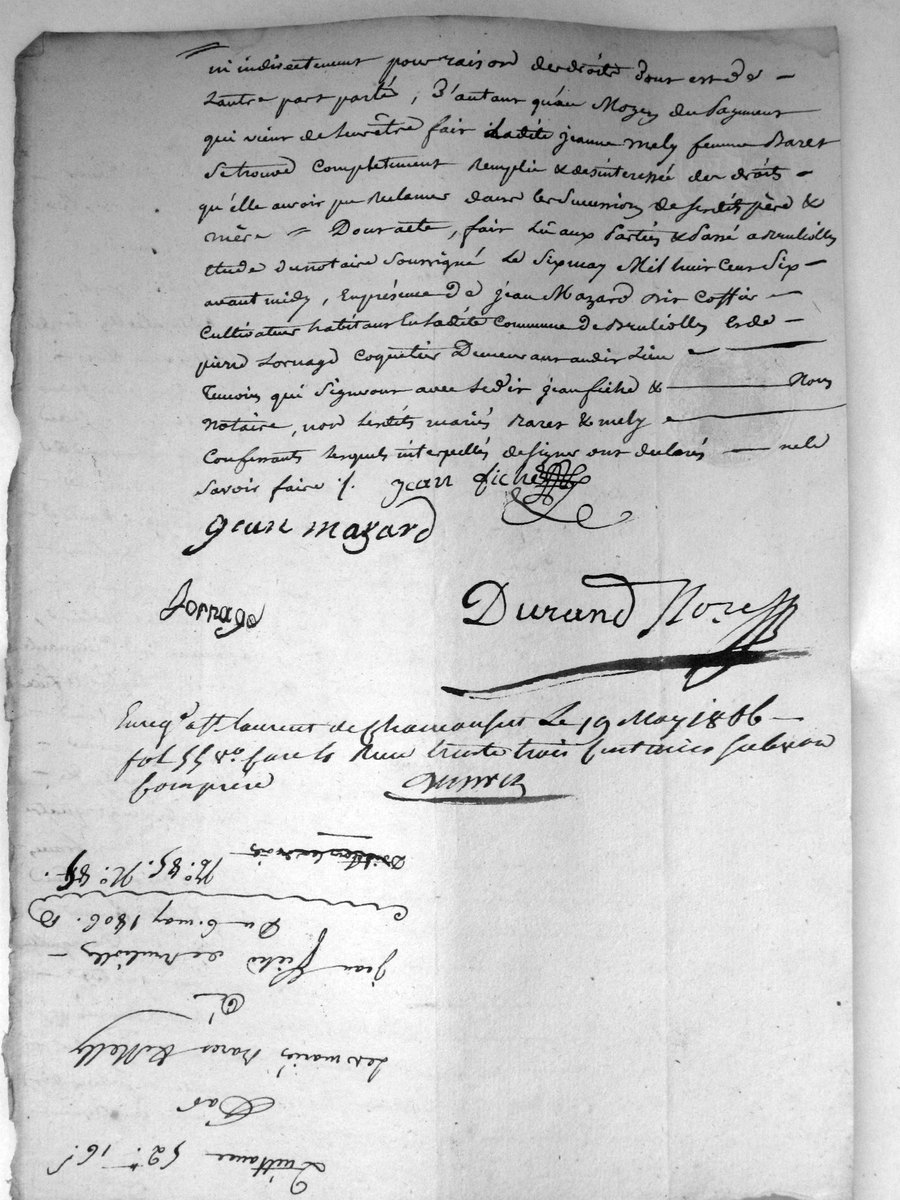 ni indirectement pour raison des droits dont est de
Lautre part parlé, D'autant qu'au Moyen du Payment
qui vient de leur être fait Ladite jeanne mely femme Bares
Se trouve completement Remplie & desinteressée des droits
qu'elle avoit pu Reclamer dans les Successions de sesdits père &
mère = Dont acte, fait Lû aux Parties & Passé a Brullioles
étude du notaire Soussigné Le Six may Mil huit Cent Six
avant midy, En présence De jean Mazard dit Coffin
Cultivateur habitant en Ladite Commune de Brullioles et de
pierre Lornage Coquetier Demeurant audit Lieu
Temoins qui Signeront avec Ledit jean fiche & Nous
Notaire, non Lesdits mariés Bares & mely
Confessants lesquels interpellés de signer ont declarés ne le
Savoir faire /. jean fiche
jean mazard
Lornage
Durand Nore
Enreg. a St laurent de Chamousset Le 19 May 1806
fol 55 Ro. Case 10 Reçu trente trois Centimes Subvon
Comprise
Quittance 52 16
Par
Les mariés Bares & Melly
à
jean fiché de Brullioles
Du 6. may 1806.
No. 85. No. 85.